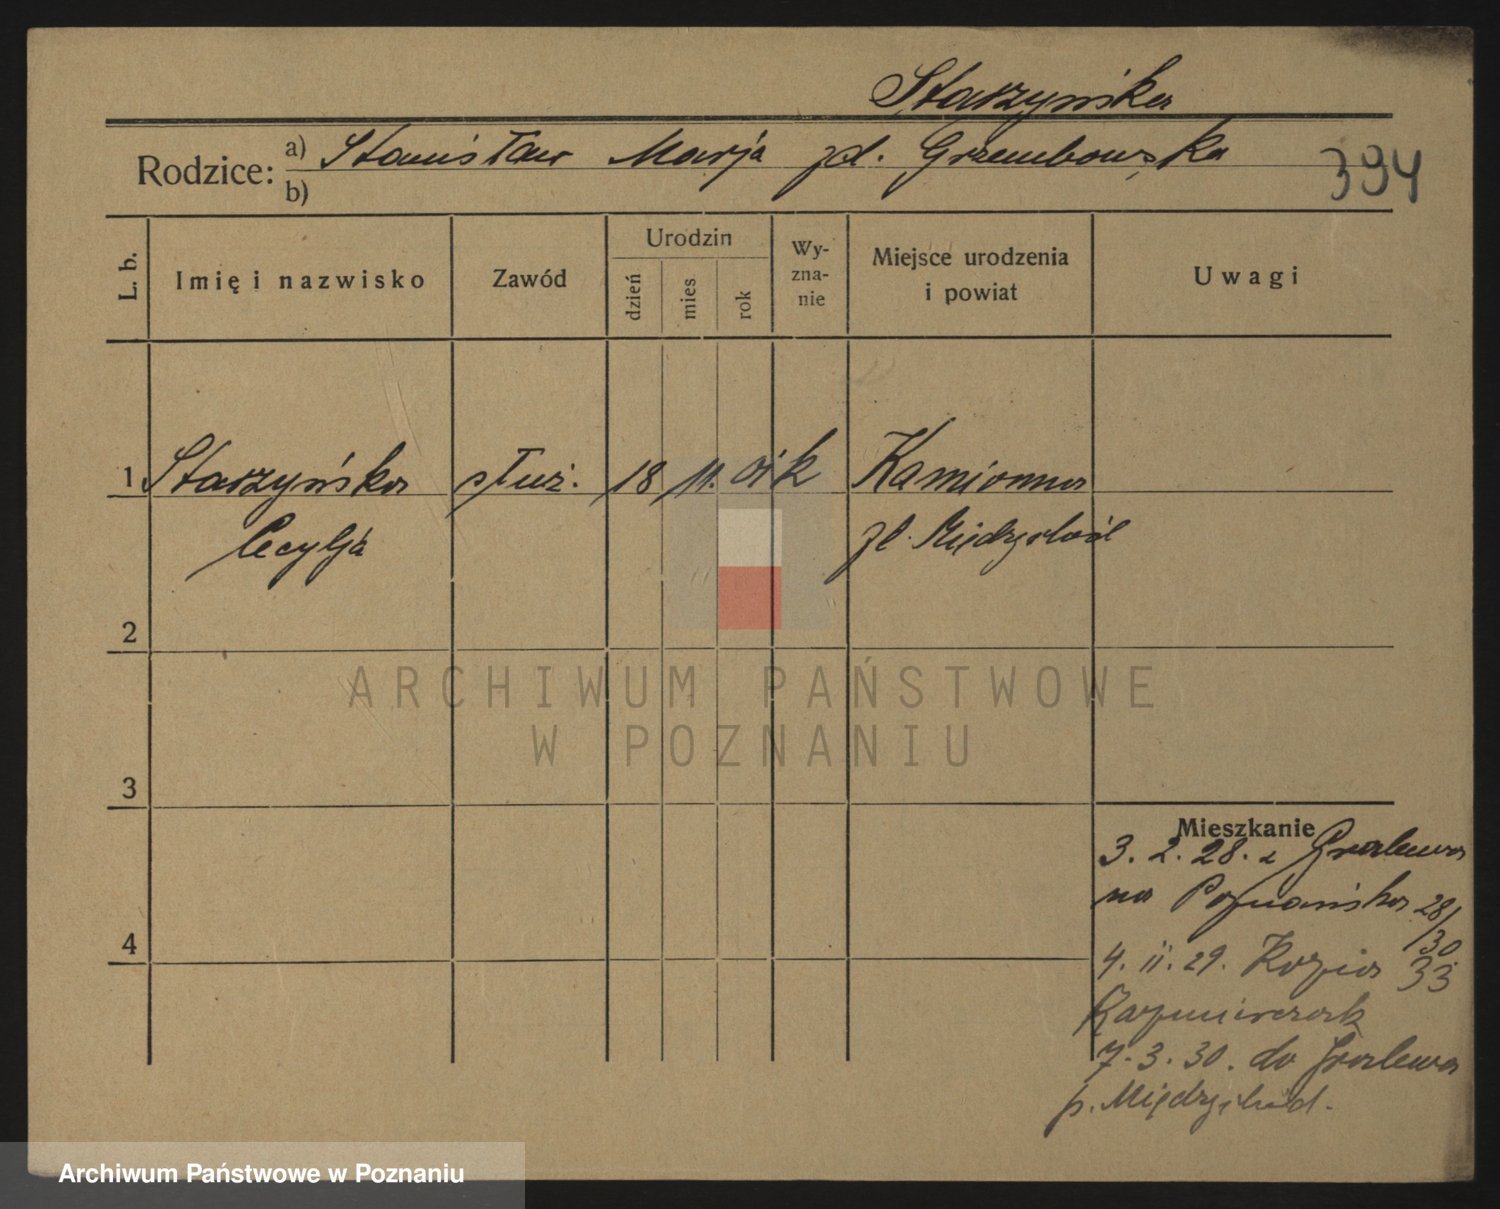 Staszyńska
Rodzice: a) Stanisław Marja zd. Grzembowska
b)
394
L. b. Imię i nazwisko Zawód Urodzin dzień mies rok Wyznanie Miejsce urodzenia i powiat Uwagi
1 Staszyńska służ. 18 11. 01 k Kamionna
Cecylja
2
ARCHIWUM PAŃSTWOWE
W POZNANIU
3
Mieszkanie
3. 2. 28. z
na Poznańska 28/30
4
4. 11. 29. 33
Kazmierczak
7. 3. 30. do
p. Międzychód.
Archiwum Państwowe w Poznaniu